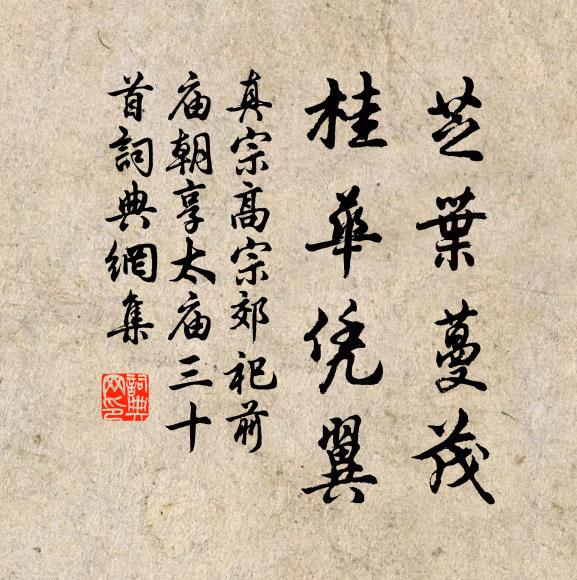 芝葉蔓茂
桂華凭翼
真宗高宗郊祀前
庙朝享太庙三十
首詞典網集
詞典
网印